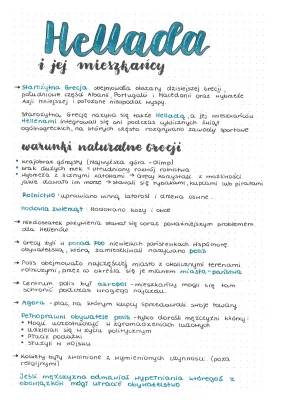 Hellada
i jej mieszkańcy
→ Starożytna Grecja obejmowała obszary dzisiejszej Grecji,
południowe części Albanii, Portugalii i Macedonii oraz wybrzeże
Azji mniejszej i położone nieopodal wyspy.
Starożytna Grecja nazywa się także Helladą, a jej mieszkańców
Hellenami. Integrowały się oni podczas cyklicznych świąt
ogólnogreckich, na których często rozgrywano zawody sportowe
warunki naturalne Grecji
• krajobraz górzysty (Najwyższa góra - Olimp)
• brak dużych rzek → utrudniony rozwój rolnictwa
• wybrzeża z licznymi zatokami → Grecy korzystając z możliwości
jakie dawało im morze → stawali się rybakami, kupcami lub piratami
Rolnictwo - uprawiano winną latorośl i drzewa oliwne.
Hodowla zwierząt - hodowano kozy i owce
→ Niedostatek pożywienia stawał się coraz poważniejszym problemem
dla Hellenów
→ Grecy żyli w ponad 700 niewielkich pośrednikach. Wspólnotę
obywatelską, którą zamieszkiwali nazywano polis
→ Polis obejmowało najczęściej miasto z okolicznymi terenami
rolniczymi, przez co określa się je mianem miasta-państwa
→ Centrum polis był akropol - mieszkańcy mogli się tam
schronić podczas wrogiego najazdu.
→ Agora - plac, na którym kupcy sprzedawali swoje towary
Pełnoprawni obywatele polis - tylko dorośli mężczyźni którzy:
• Mogli uczestniczyć w zgromadzeniach ludowych
• udzielali się w życiu politycznym
• Płacili podatki
• Służyli w wojsku
→ Kobiety były zwolnione z wymienionych czynności (poza
religijnymi)
Jeśli mężczyzna odmawiał wypełniania któregoś z
obowiązków mógł utracić obywatelstwo.